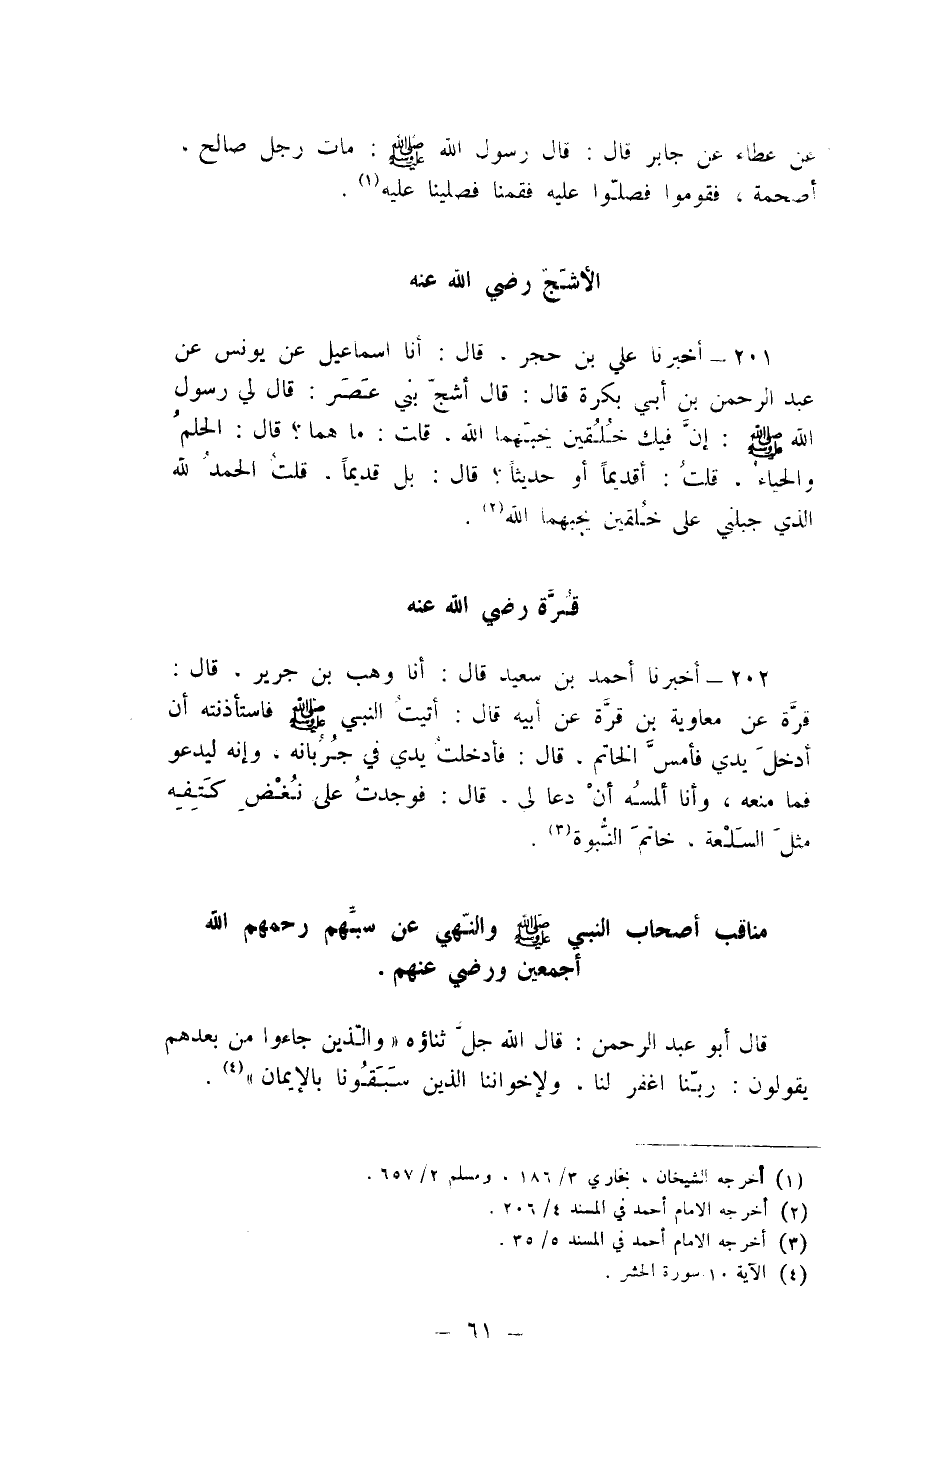 عن عطاء عن جابر قال : قال رسول الله ﷺ : مات رجل صالح .
أصحمة ، فقوموا فصلّوا عليه فقمنا فصلينا عليه(١) .
الأشجّ رضي الله عنه
٢٠١ – أخبرنا علي بن حجر . قال : أنا اسماعيل عن يونس عن
عبد الرحمن بن أبي بكرة قال : قال أشجّ بني عَصَر : قال لي رسول
الله ﷺ : إنَّ فيك خُلُقين يحبّهما الله . قلت : ما هما ؟ قال : الحلمُ
والحياءُ . قلتُ : أقديماً أو حديثاً ؟ قال : بل قديماً . قلتُ الحمدُ لله
الذي جبلني على خُلقين يحبهما الله(٢) .
قُرَّة رضي الله عنه
٢٠٢ – أخبرنا أحمد بن سعيد قال : أنا وهب بن جرير . قال :
قرَّة عن معاوية بن قرَّة عن أبيه قال : أتيتُ النبي ﷺ فاستأذنته أن
أدخلَ يدي فأمسَّ الخاتم . قال : فأدخلتُ يدي في جُرُبانه ، وإنه ليدعو
فما منعه ، وأنا ألمسُه أنْ دعا لى . قال : فوجدتُ على نُغْضِ كَتِفِه
مثلَ السَلْعة . خاتمَ النُّبوة(٣) .
مناقب أصحاب النبي ﷺ والنّهي عن سبّهم رحمهم الله
أجمعين ورضي عنهم .
قال أبو عبد الرحمن : قال الله جلَّ ثناؤه « والّذين جاءوا من بعدهم
يقولون : ربّنا اغفر لنا . ولإخواننا الذين سَبَقُونا بالإيمان »(٤) .
(١) أخرجه الشيخان ، بخاري ٣/ ١٨٦ . ومسلم ٢/ ٦٥٧ .
(٢) أخرجه الامام أحمد في المسند ٤/ ٢٠٦ .
(٣) أخرجه الامام أحمد في المسند ٥/ ٣٥ .
(٤) الآية ١٠ سورة الحشر .
– ٦١ –